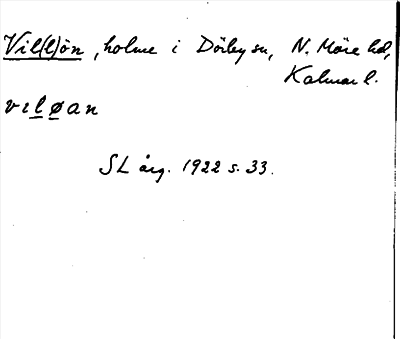 Vil(l)ön, holme i Dörby sn, N. Möre hd,
Kalmar l.
viløan
SL årg. 1922 s. 33.